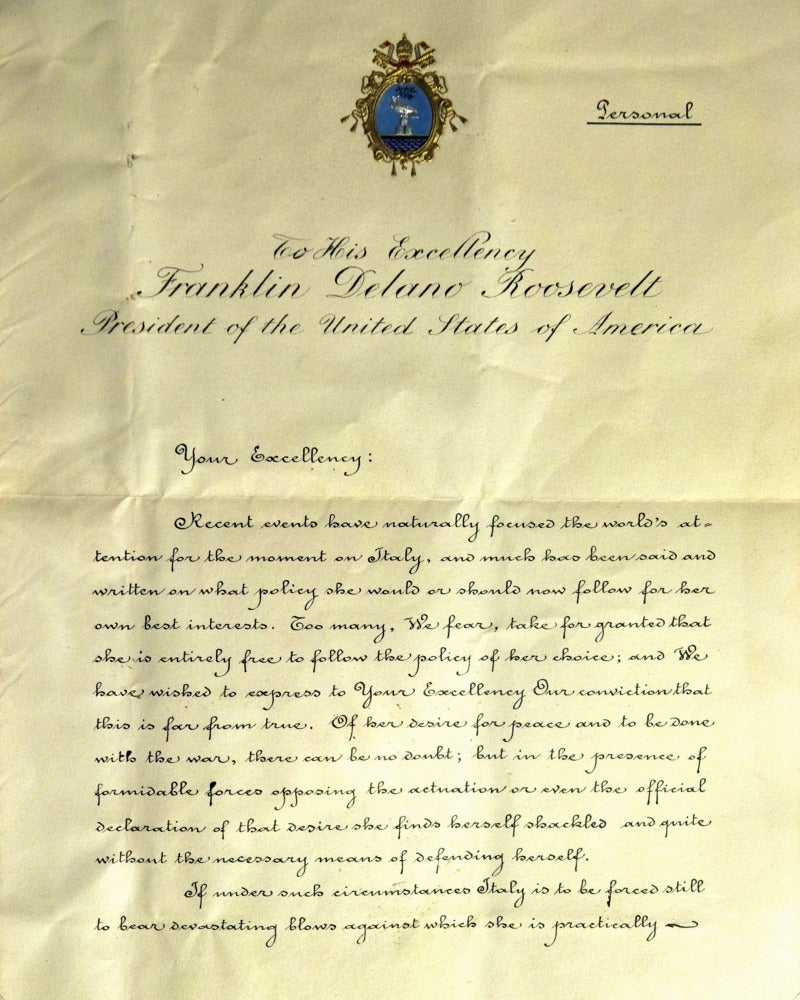 Personal
To His Excellency
Franklin Delano Roosevelt
President of the United States of America
Your Excellency:
Recent events have naturally focused the world's at=
tention for the moment on Italy, and much has been said and
written on what policy she would or should now follow for her
own best interests. Too many, We fear, take for granted that
she is entirely free to follow the policy of her choice; and We
have wished to express to Your Excellency Our conviction that
this is far from true. Of her desire for peace and to be done
with the war, there can be no doubt; but in the presence of
formidable forces opposing the actuation or even the official
declaration of that desire she finds herself shackled and quite
without the necessary means of defending herself.
If under such circumstances Italy is to be forced still
to bear devastating blows against which she is practically